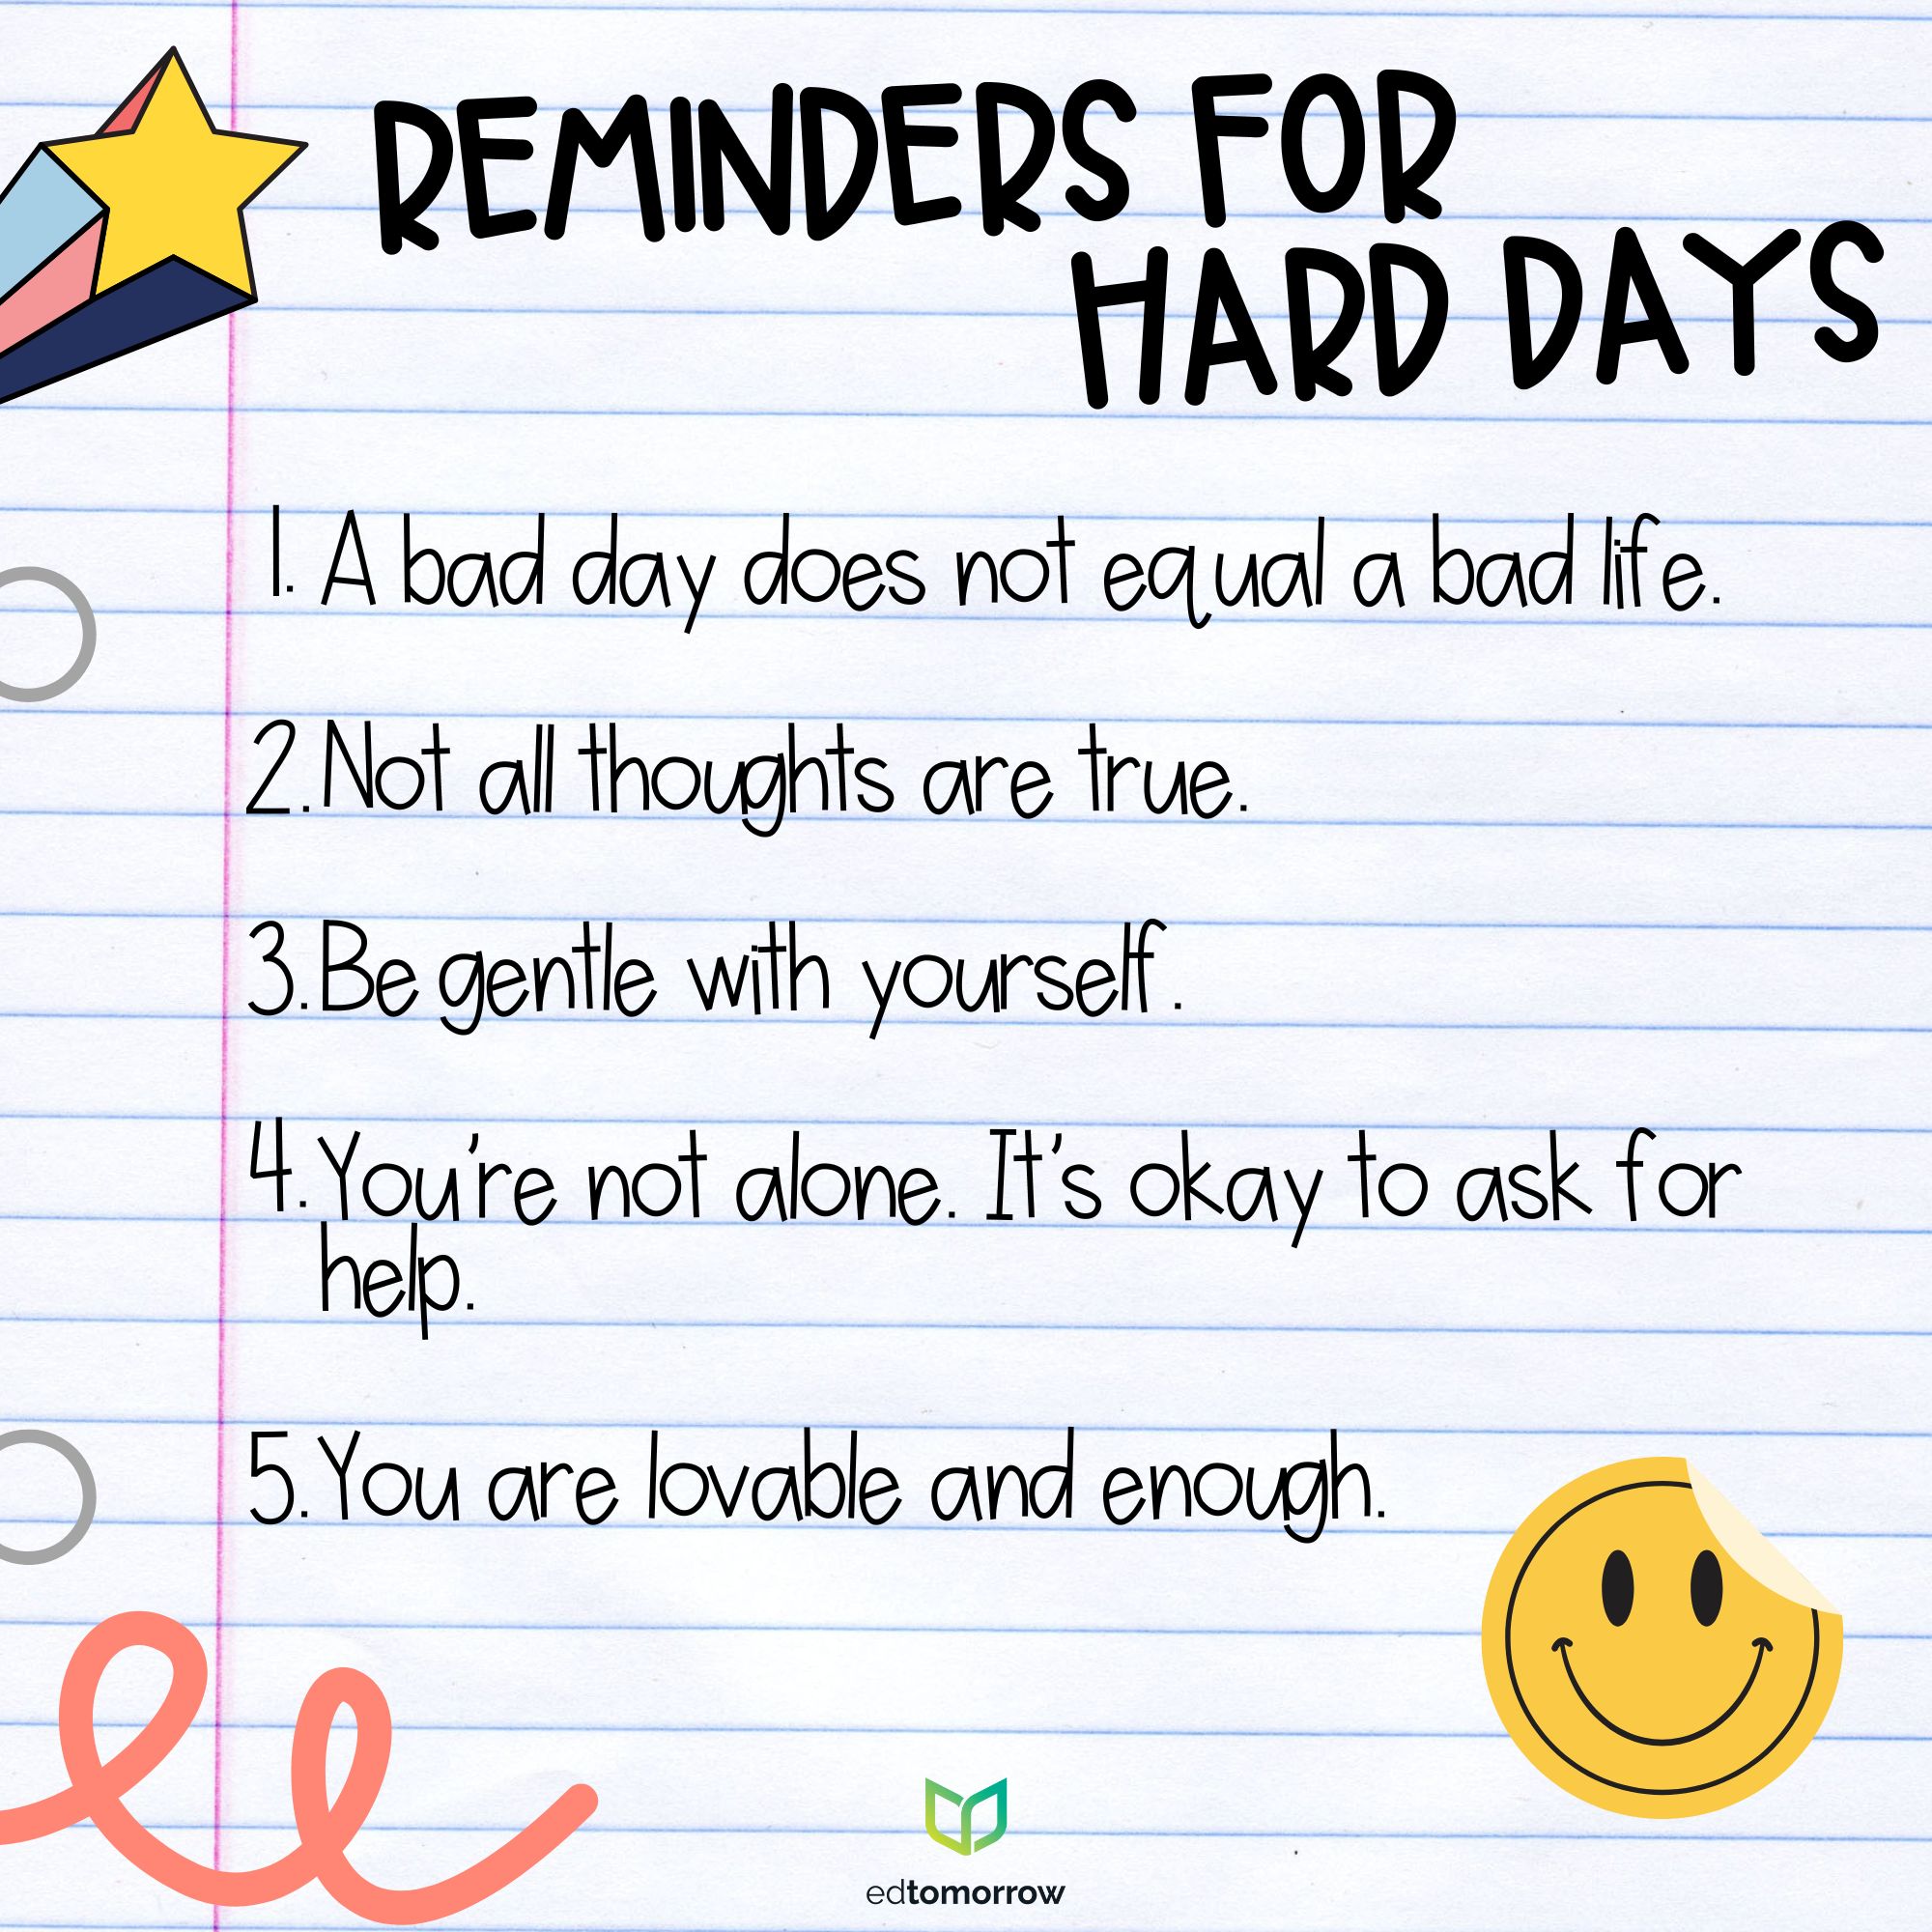 REMINDERS FOR
HARD DAYS
1. A bad day does not equal a bad life.
2. Not all thoughts are true.
3. Be gentle with yourself.
4. You're not alone. It's okay to ask for
help.
5. You are lovable and enough.
edtomorrow